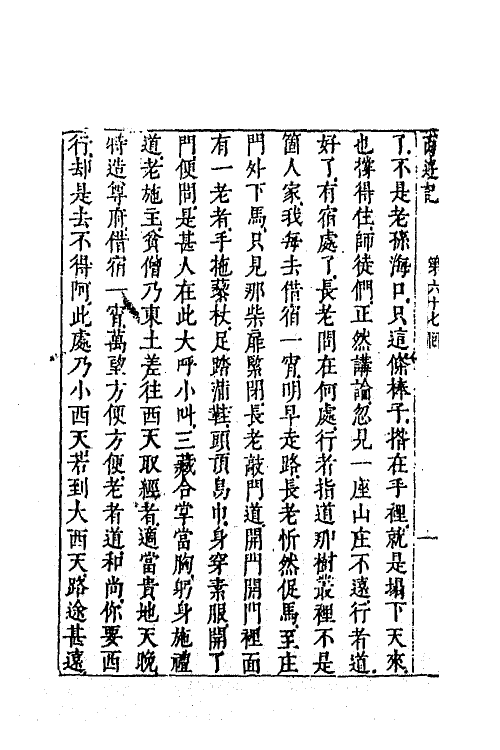 西遊記 第六十七回 一
了不是老孫海口只這條棒子揝在手裡就是塌下天來
也撑得住師徒們正然講論忽見一座山庄不遠行者道
好了有宿處了長老問在何處行者指道那樹叢裡不是
箇人家我每去借宿一宵明早走路長老忻然促馬至庄
門外下馬只見那柴扉緊閉長老敲門道開門開門裡面
有一老者手拖藜杖足踏蒲鞋頭頂烏巾身穿素服開了
門便問是甚人在此大呼小叫三藏合掌當胸躬身施禮
道老施主貧僧乃東土差往西天取經者適當貴地天晚
特造尊府借宿一宵萬望方便方便老者道和尚你要西
行却是去不得阿此處乃小西天若到大西天路途甚遠